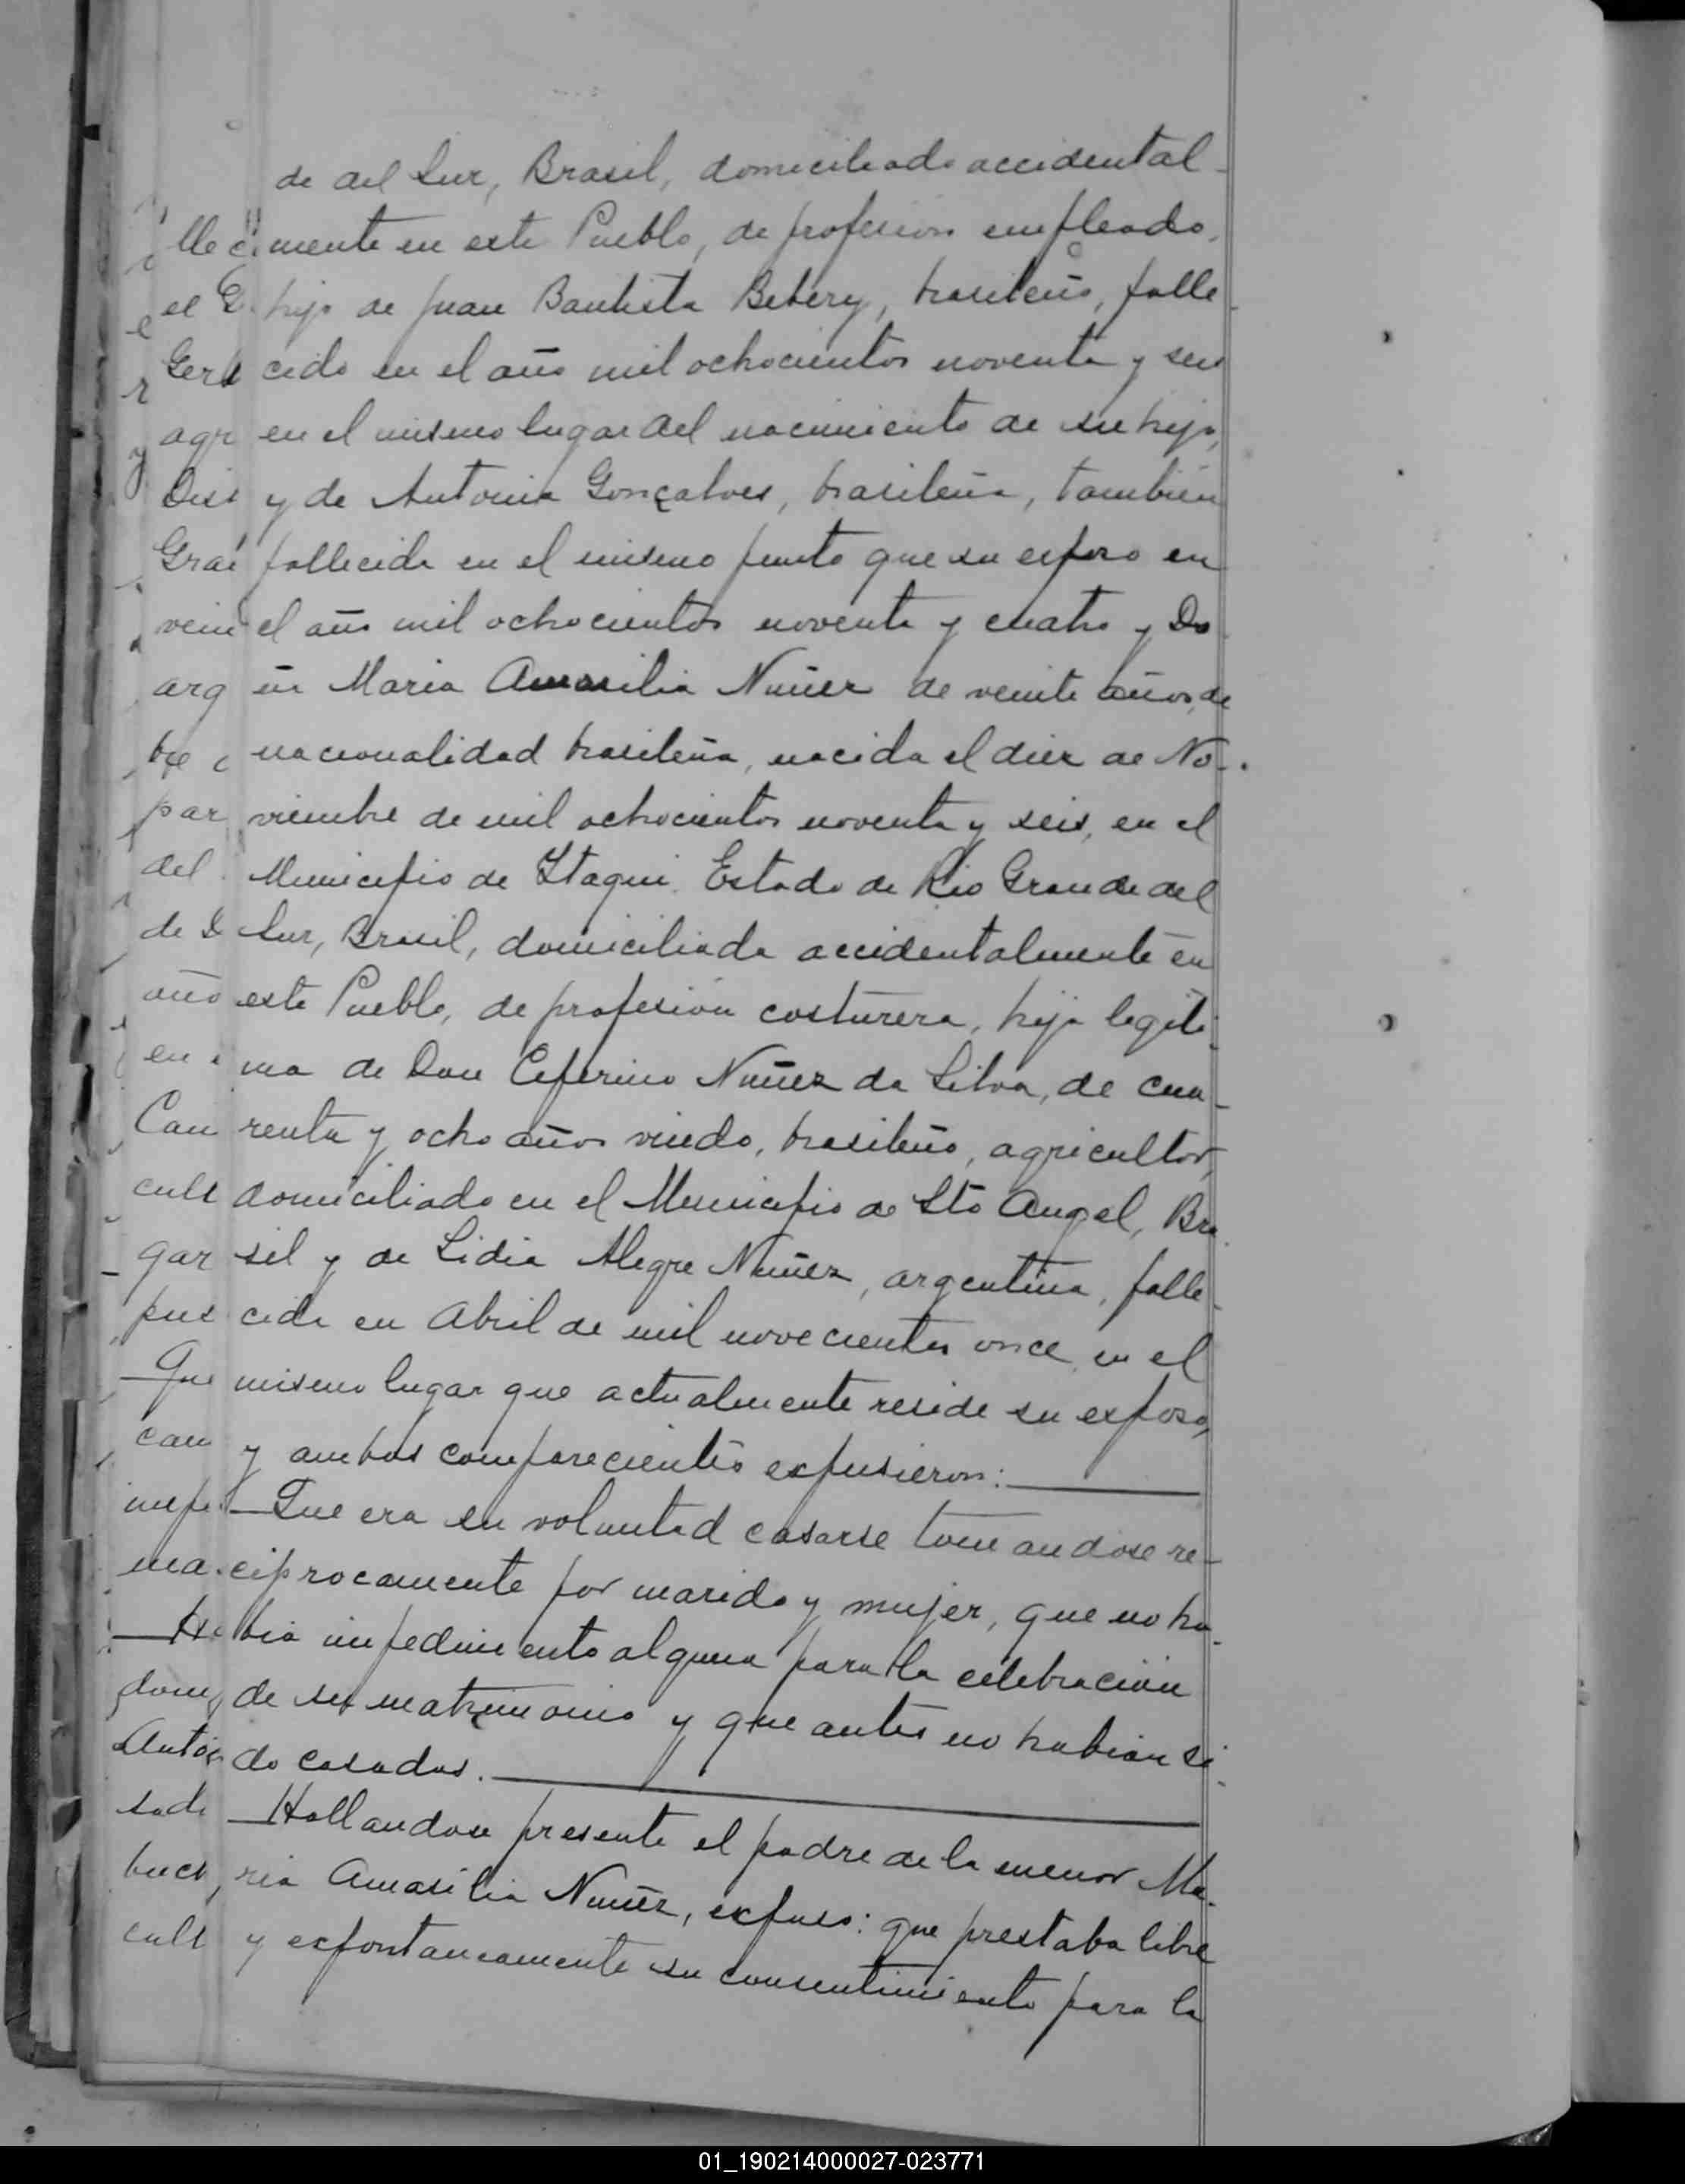 de del Sur, Brasil, domiciliado accidental-
mente en este Pueblo, de profesión empleado,
hijo de Juan Bautista Bebery, brasileño, falle-
cido en el año mil ochocientos noventa y seis
en el mismo lugar del nacimiento de su hijo,
y de Antonia Gonçalves, brasileña, también
fallecida en el mismo punto que su esposo en
el año mil ochocientos noventa y cuatro y Do-
ña Maria Amasilia Nuñez de veinte años, de
nacionalidad brasileña, nacida el diez de No-
viembre de mil ochocientos noventa y seis, en el
Municipio de Itaqui, Estado de Rio Grande del
Sur, Brasil, domiciliada accidentalmente en
este Pueblo, de profesión costurera, hija legiti-
ma de Don Ceferino Nuñez da Silva, de cua-
renta y ocho años viudo, brasileño, agricultor,
domiciliado en el Municipio de Sto Angel, Bra-
sil y de Lidia Alegre Nuñez, argentina, falle-
cida en Abril de mil novecientos once en el
mismo lugar que actualmente reside su esposo,
y ambos comparecientes expusieron:
Que era su voluntad casarse tomandose re-
ciprocamente por marido y mujer, que no ha-
bia impedimento alguno para la celebración
de su matrimonio y que antes no habian si-
do casados.
Hallandose presente el padre de la menor Ma-
ria Amasilia Nuñez, expuso: que prestaba libre
y expontaneamente su consentimiento para la
01_190214000027-023771